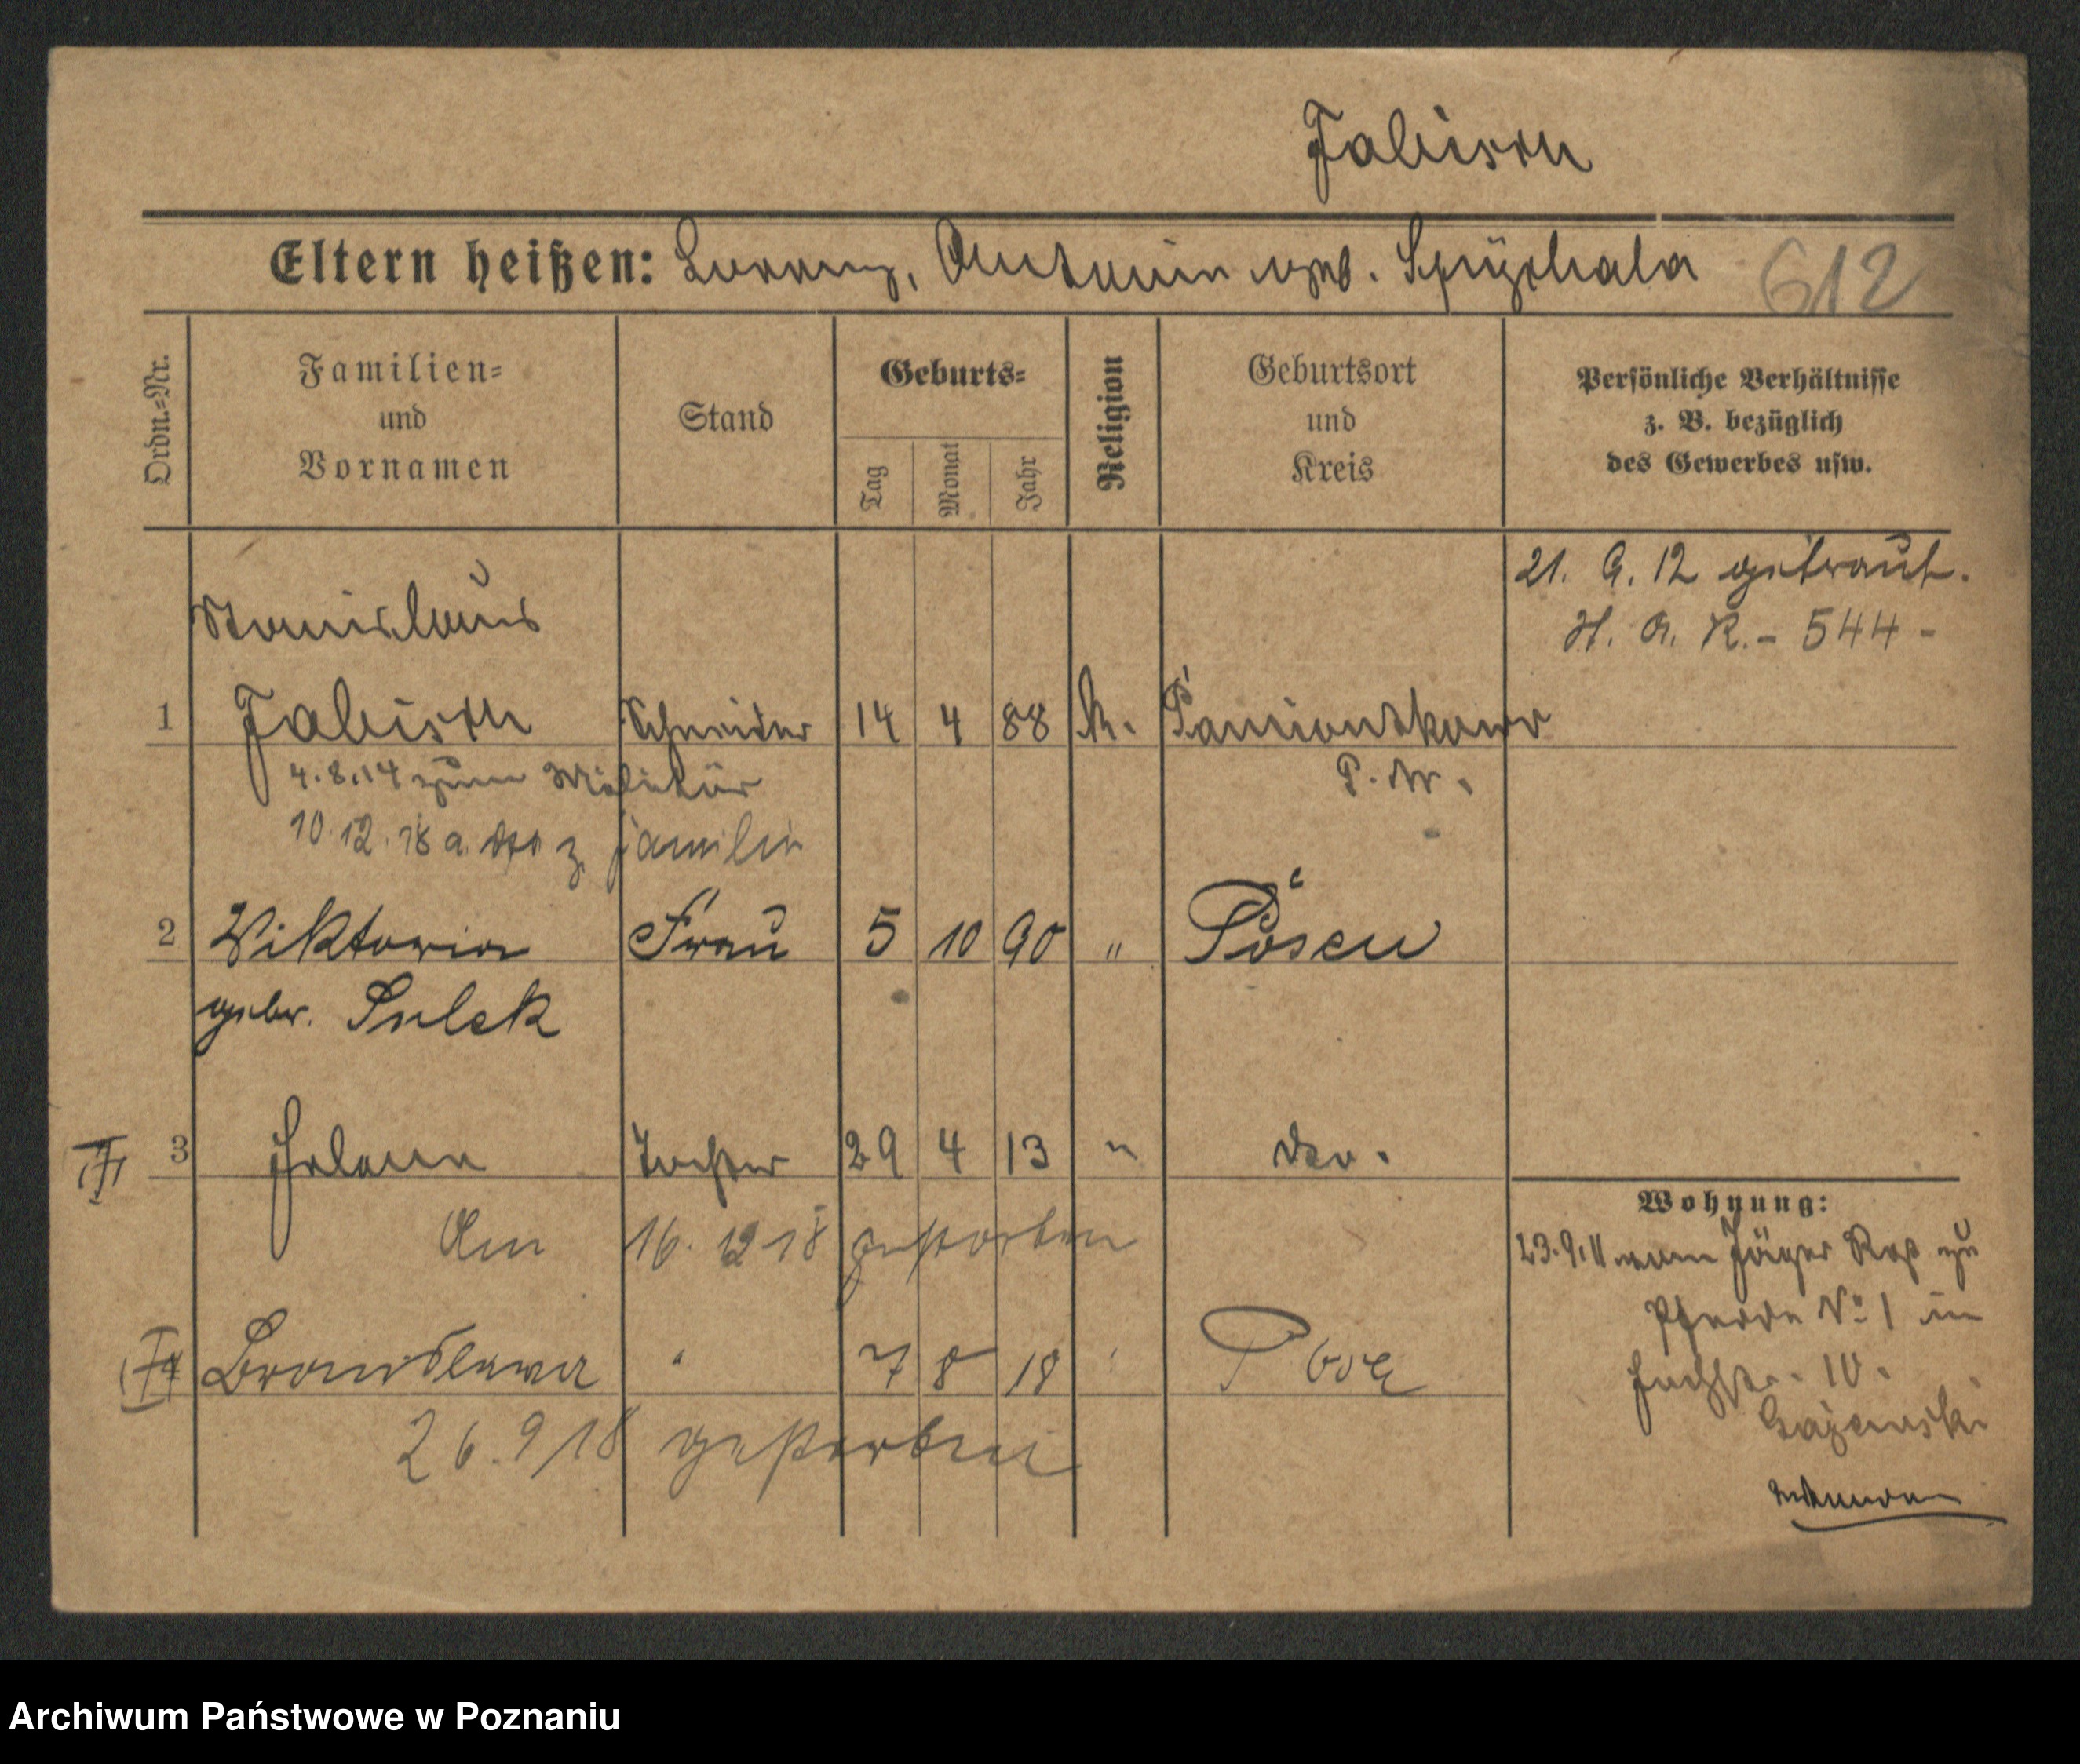 Fabisch
Eltern heißen: Lorenz, Antonie geb. Spychala 612
Ordn.-Nr.
Familien-
und
Vornamen
Stand
Geburts-
Tag
Monat
Jahr
Religion
Geburtsort
und
Kreis
Persönliche Verhältnisse
z. B. bezüglich
des Gewerbes usw.
21. 9. 12 getraut.
H. A. R. - 544 -
Stanislaus
1 Fabisch Schneider 14 4 88 k. Pamiontkowo
4.8.14 zum Militär P. W.
10.12.18 a. z. Familie
2 Wiktoria Frau 5 10 90 " Posen
gebr. Sulek
3 Helena Tochter 29 4 13 " do.
Am 16. 12 18 gestorben
4 Bronislawa " 7 8 18 "
26.9/18 gestorben
Wohnung:
23.9.11 vom Jäger Rgt zu
Pferde No 1 in
10.
Gajewski
Archiwum Państwowe w Poznaniu